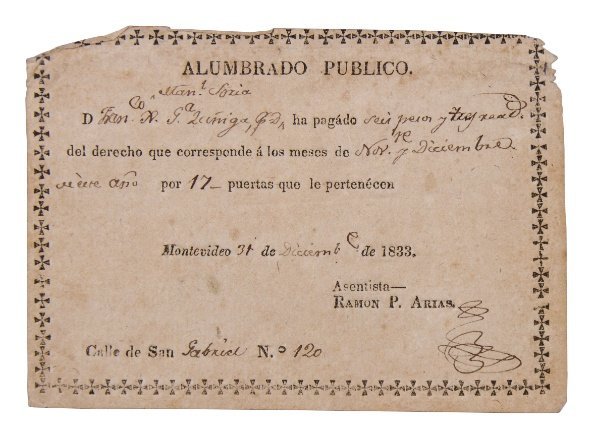 ALUMBRADO PUBLICO.
Man.l Soria
D Fran.co A. Zuñiga, ha pagádo seis pesos y tres read.
del derecho que corresponde á los meses de Nov.re y Diciembre
año por 17 puertas que le pertenécen
Montevideo 31 de Diciemb.e de 1833.
Asentista—
RAMON P. ARIAS.
Calle de San Gabriel N.o 120